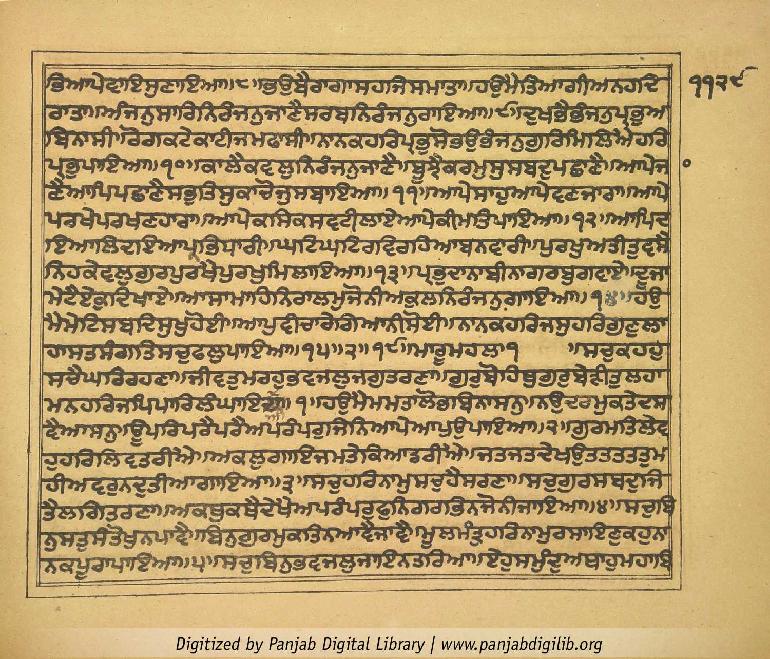 ਭਿਆਪੇਦਾਇਸੁਣਾਇਆ॥੮॥ਭਉਬੈਰਾਗਾਸਹਜਿਸਮਾਤਾ॥ਹਉਮੈਤਿਆਗੀਅਨਹਦਿ
੧੧੨੯
ਰਾਤਾ॥ਅੰਜਨੁਸਾਰਿਨਿਰੰਜਨੁਜਾਣੈਸਰਬਨਿਰੰਜਨੁਰਾਇਆ॥੯॥ਦੁਖਭੈਭੰਜਨੁਪ੍ਰਭੁਅ
ਬਿਨਾਸੀ॥ਰੋਗਕਟੇਕਾਟੀਜਮਫਾਸੀ॥ਨਾਨਕਹਰਿਪ੍ਰਭੁਸੋਭਉਭੰਜਨੁਗੁਰਿਮਿਲਿਐਹਰਿ
ਪ੍ਰਭੁਪਾਇਆ॥੧੦॥ਕਾਲੈਕਵਲੁਨਿਰੰਜਨੁਜਾਣੈ॥ਬੂਝੈਕਰਮੁਸੁਸਬਦੁਪਛਾਣੈ॥ਆਪੇਜ
ਣੈਆਪਿਪਛਾਣੈਸਭੁਤਿਸੁਕਾਚੋਜੁਸਬਾਇਆ॥੧੧॥ਆਪੇਸਾਹੁਆਪੇਵਣਜਾਰਾ॥ਆਪੇ
ਪਰਖੇਪਰਖਣਹਾਰਾ॥ਆਪੇਕਸਿਕਸਵਟੀਲਾਏਆਪੇਕੀਮਤਿਪਾਇਆ॥੧੨॥ਆਪਿਦ
ਇਆਲਿਦਇਆਪ੍ਰਭਿਧਾਰੀ॥ਘਟਿਘਟਿਰਵਿਰਹਿਆਬਨਵਾਰੀ॥ਪੁਰਖੁਅਤੀਤੁਵਸੈ
ਨਿਹਕੇਵਲੁਗੁਰਪੁਰਖੈਪੁਰਖੁਮਿਲਾਇਆ॥੧੩॥ਪ੍ਰਭੁਦਾਨਾਬੀਨਾਗਰਬੁਗਵਾਏ॥ਦੂਜਾ
ਮੇਟੈਏਕੁਦਿਖਾਏ॥ਆਸਾਮਾਹਿਨਿਰਾਲਮੁਜੋਨੀਅਕੁਲਨਿਰੰਜਨੁਗਾਇਆ॥੧੪॥ਹਉ
ਮੈਮੇਟਿਸਬਦਿਸੁਖੁਹੋਈ॥ਆਪੁਵੀਚਾਰੇਗਿਆਨੀਸੋਈ॥ਨਾਨਕਹਰਿਜਸੁਹਰਿਗੁਣਲਾ
ਹਾਸਤਸੰਗਤਿਸਚੁਫਲੁਪਾਇਆ॥੧੫॥੨॥੧੯॥ਮਾਰੂਮਹਲਾ੧ ॥ਸਚੁਕਹਹੁ
ਸਚੈਘਰਿਰਹਣਾ॥ਜੀਵਤਮਰਹੁਭਵਜਲੁਜਗੁਤਰਣਾ॥ਗੁਰੁਬੋਹਿਥੁਗੁਰੁਬੇੜੀਤੁਲਹਾ
ਮਨਹਰਿਜਪਿਪਾਰਿਲੰਘਾਇਆ॥੧॥ਹਉਮੈਮਮਤਾਲੋਭਬਿਨਾਸਨੁ॥ਨਉਦਰਮੁਕਤੇਦਸ
ਵੈਆਸਨੁ॥ਊਪਰਿਪਰੈਪਰੈਅਪਰੰਪਰੁਜਿਨਿਆਪੇਆਪੁਉਪਾਇਆ॥੨॥ਗੁਰਮਤਿਲੇਵ
ਹੁਹਰਿਲਿਵਤਰੀਐ॥ਅਕਲੁਗਾਇਜਮਤੇਕਿਆਡਰੀਐ॥ਜਤਜਤਦੇਖਉਤਤਤਤਤੁਮ
ਹੀਅਵਰੁਨਦੁਤੀਆਗਾਇਆ॥੩॥ਸਚੁਹਰਿਨਾਮੁਸਚੁਹੈਸਰਣਾ॥ਸਚੁਗੁਰਸਬਦੁਜਿ
ਤੈਲਗਿਤਰਣਾ॥ਅਕਥੁਕਥੈਦੇਖੈਅਪਰੰਪਰੁਫੁਨਿਗਰਭਿਨਜੋਨੀਜਾਇਆ॥੪॥ਸਚਬਿ
ਨੁਸਤੁਸੰਤੋਖੁਨਪਾਵੈ॥ਬਿਨੁਗੁਰਮੁਕਤਿਨਆਵੈਜਾਵੈ॥ਮੂਲਮੰਤ੍ਰੁਹਰਿਨਾਮੁਰਸਾਇਣੁਕਹੁਨਾ
ਨਕਪੂਰਾਪਾਇਆ॥੫॥ਸਚਬਿਨੁਭਵਜਲੁਜਾਇਨਤਰਿਆ॥ਏਹੁਸਮੁੰਦੁਅਥਾਹੁਮਹਾਬਿ
Digitized by Panjab Digital Library | www.panjabdigilib.org